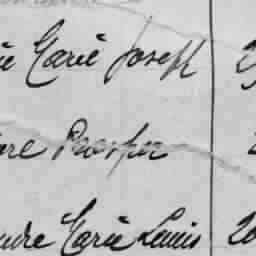 ie Marie Joseph 2
re Prosper 2
ndre Marie Louis 20